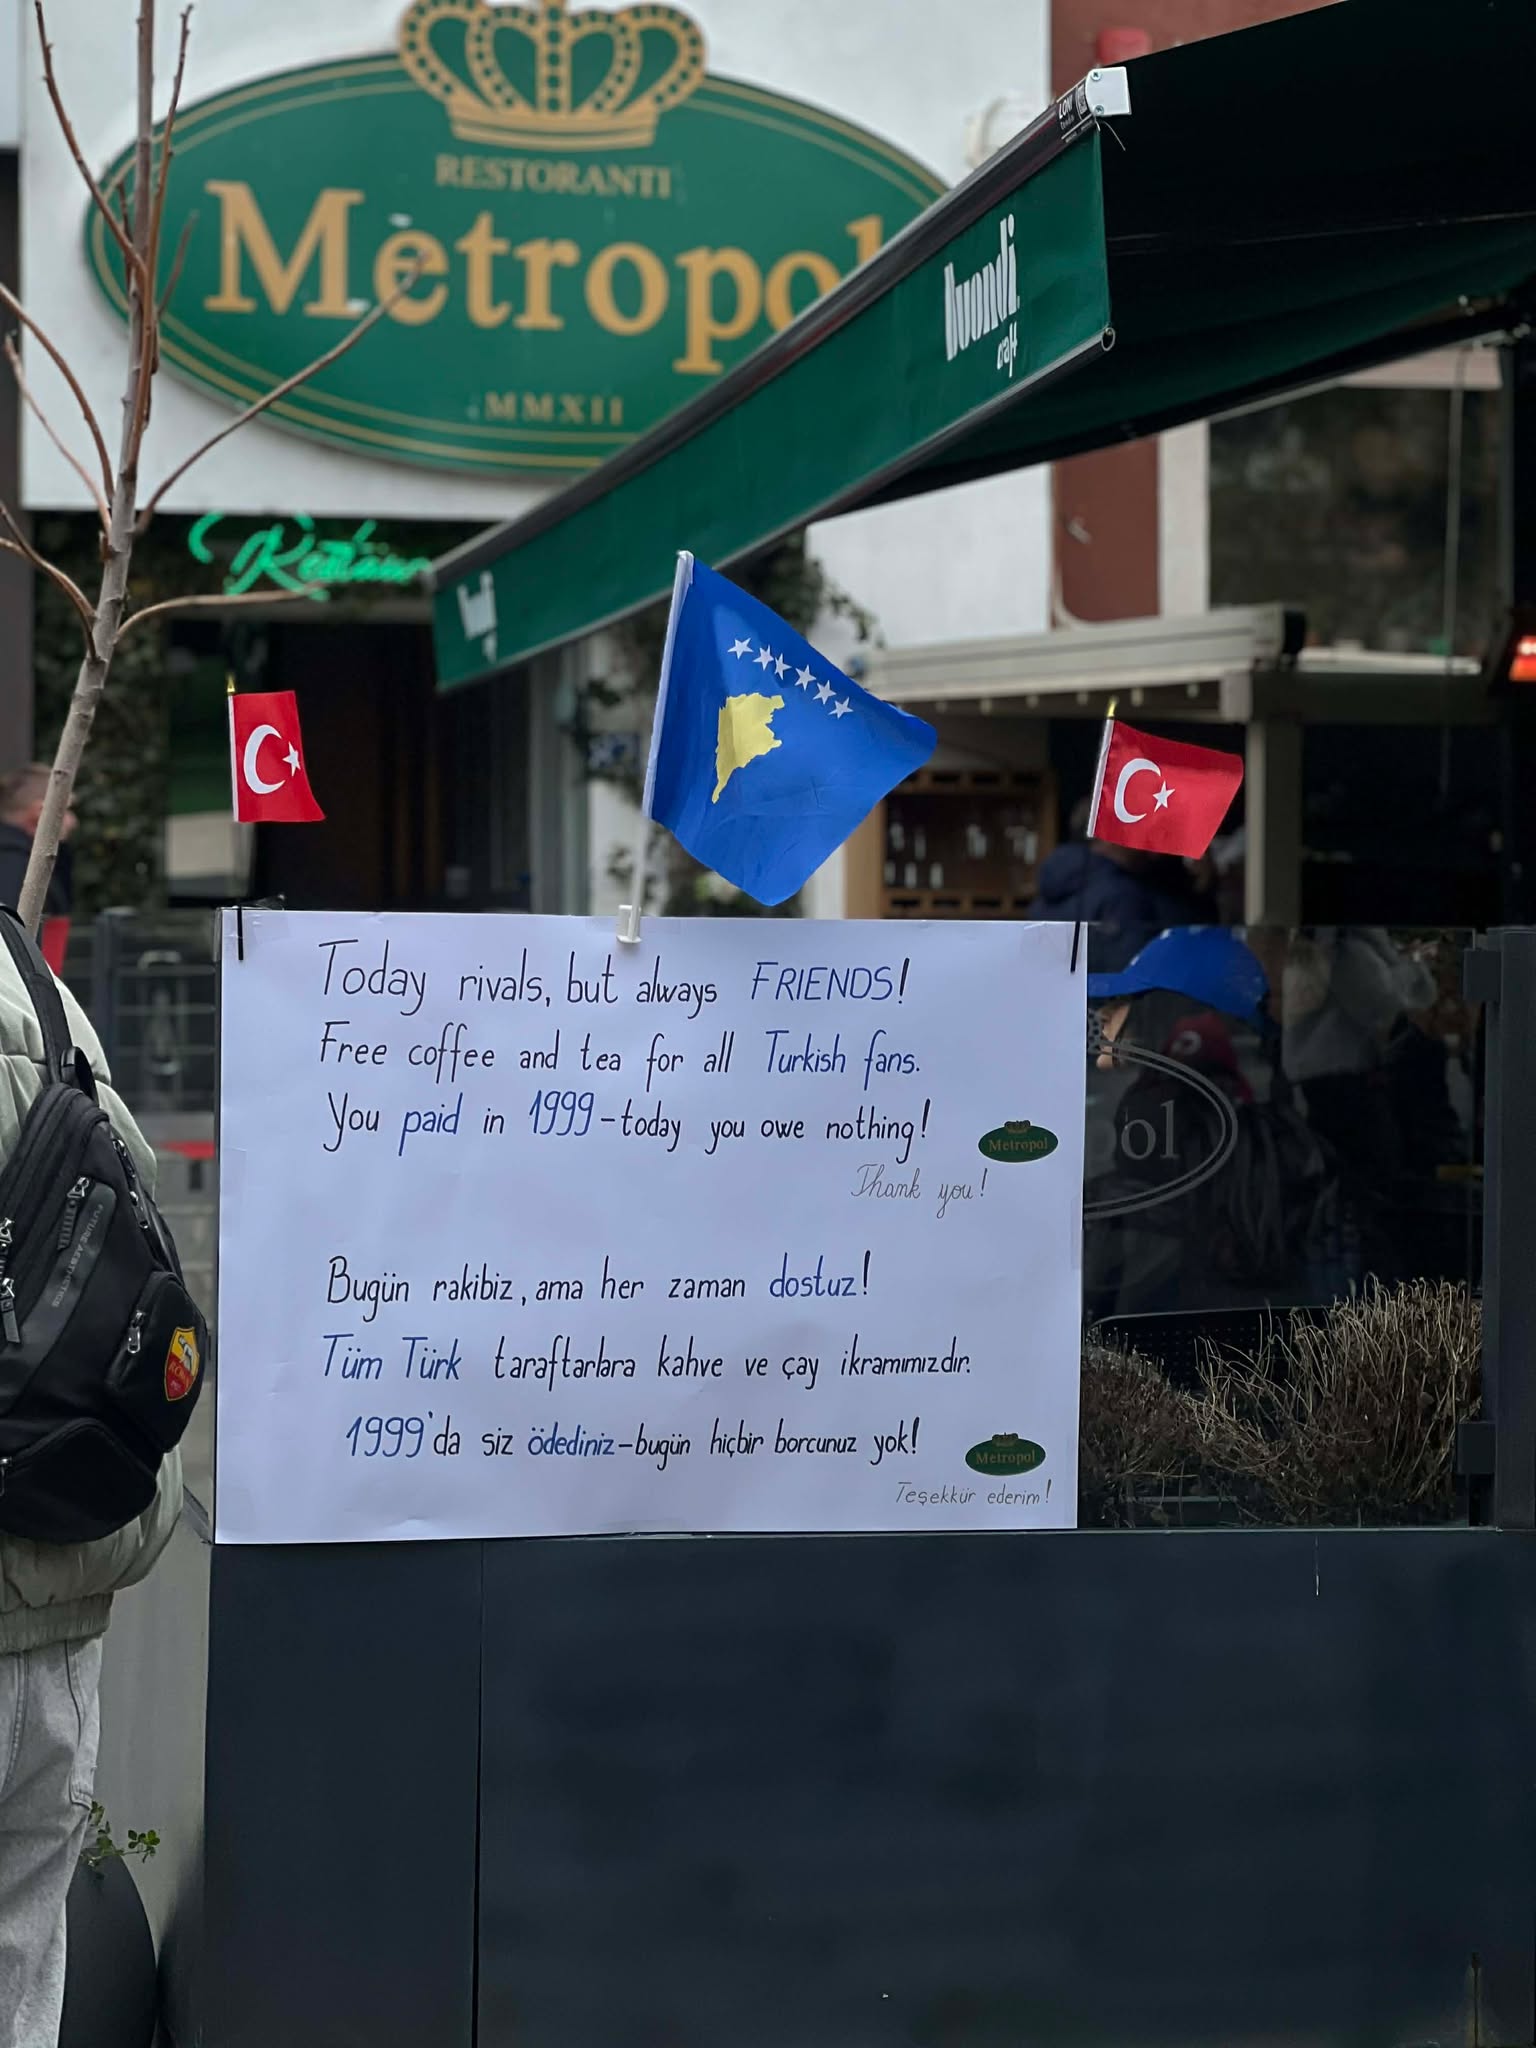 RESTORANTI
Metropol
MMXII
buondi
craft
Today rivals, but always FRIENDS!
Free coffee and tea for all Turkish fans.
You paid in 1999-today you owe nothing!
Metropol
Thank you!
Bugün rakibiz, ama her zaman dostuz!
Tüm Türk taraftarlara kahve ve çay ikramımızdır.
1999'da siz ödediniz-bugün hiçbir borcunuz yok!
Metropol
Teşekkür ederim!
pol